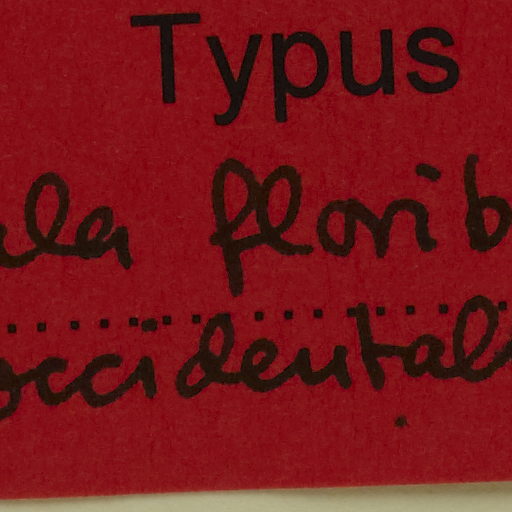 Typus
ala florib
occidentali